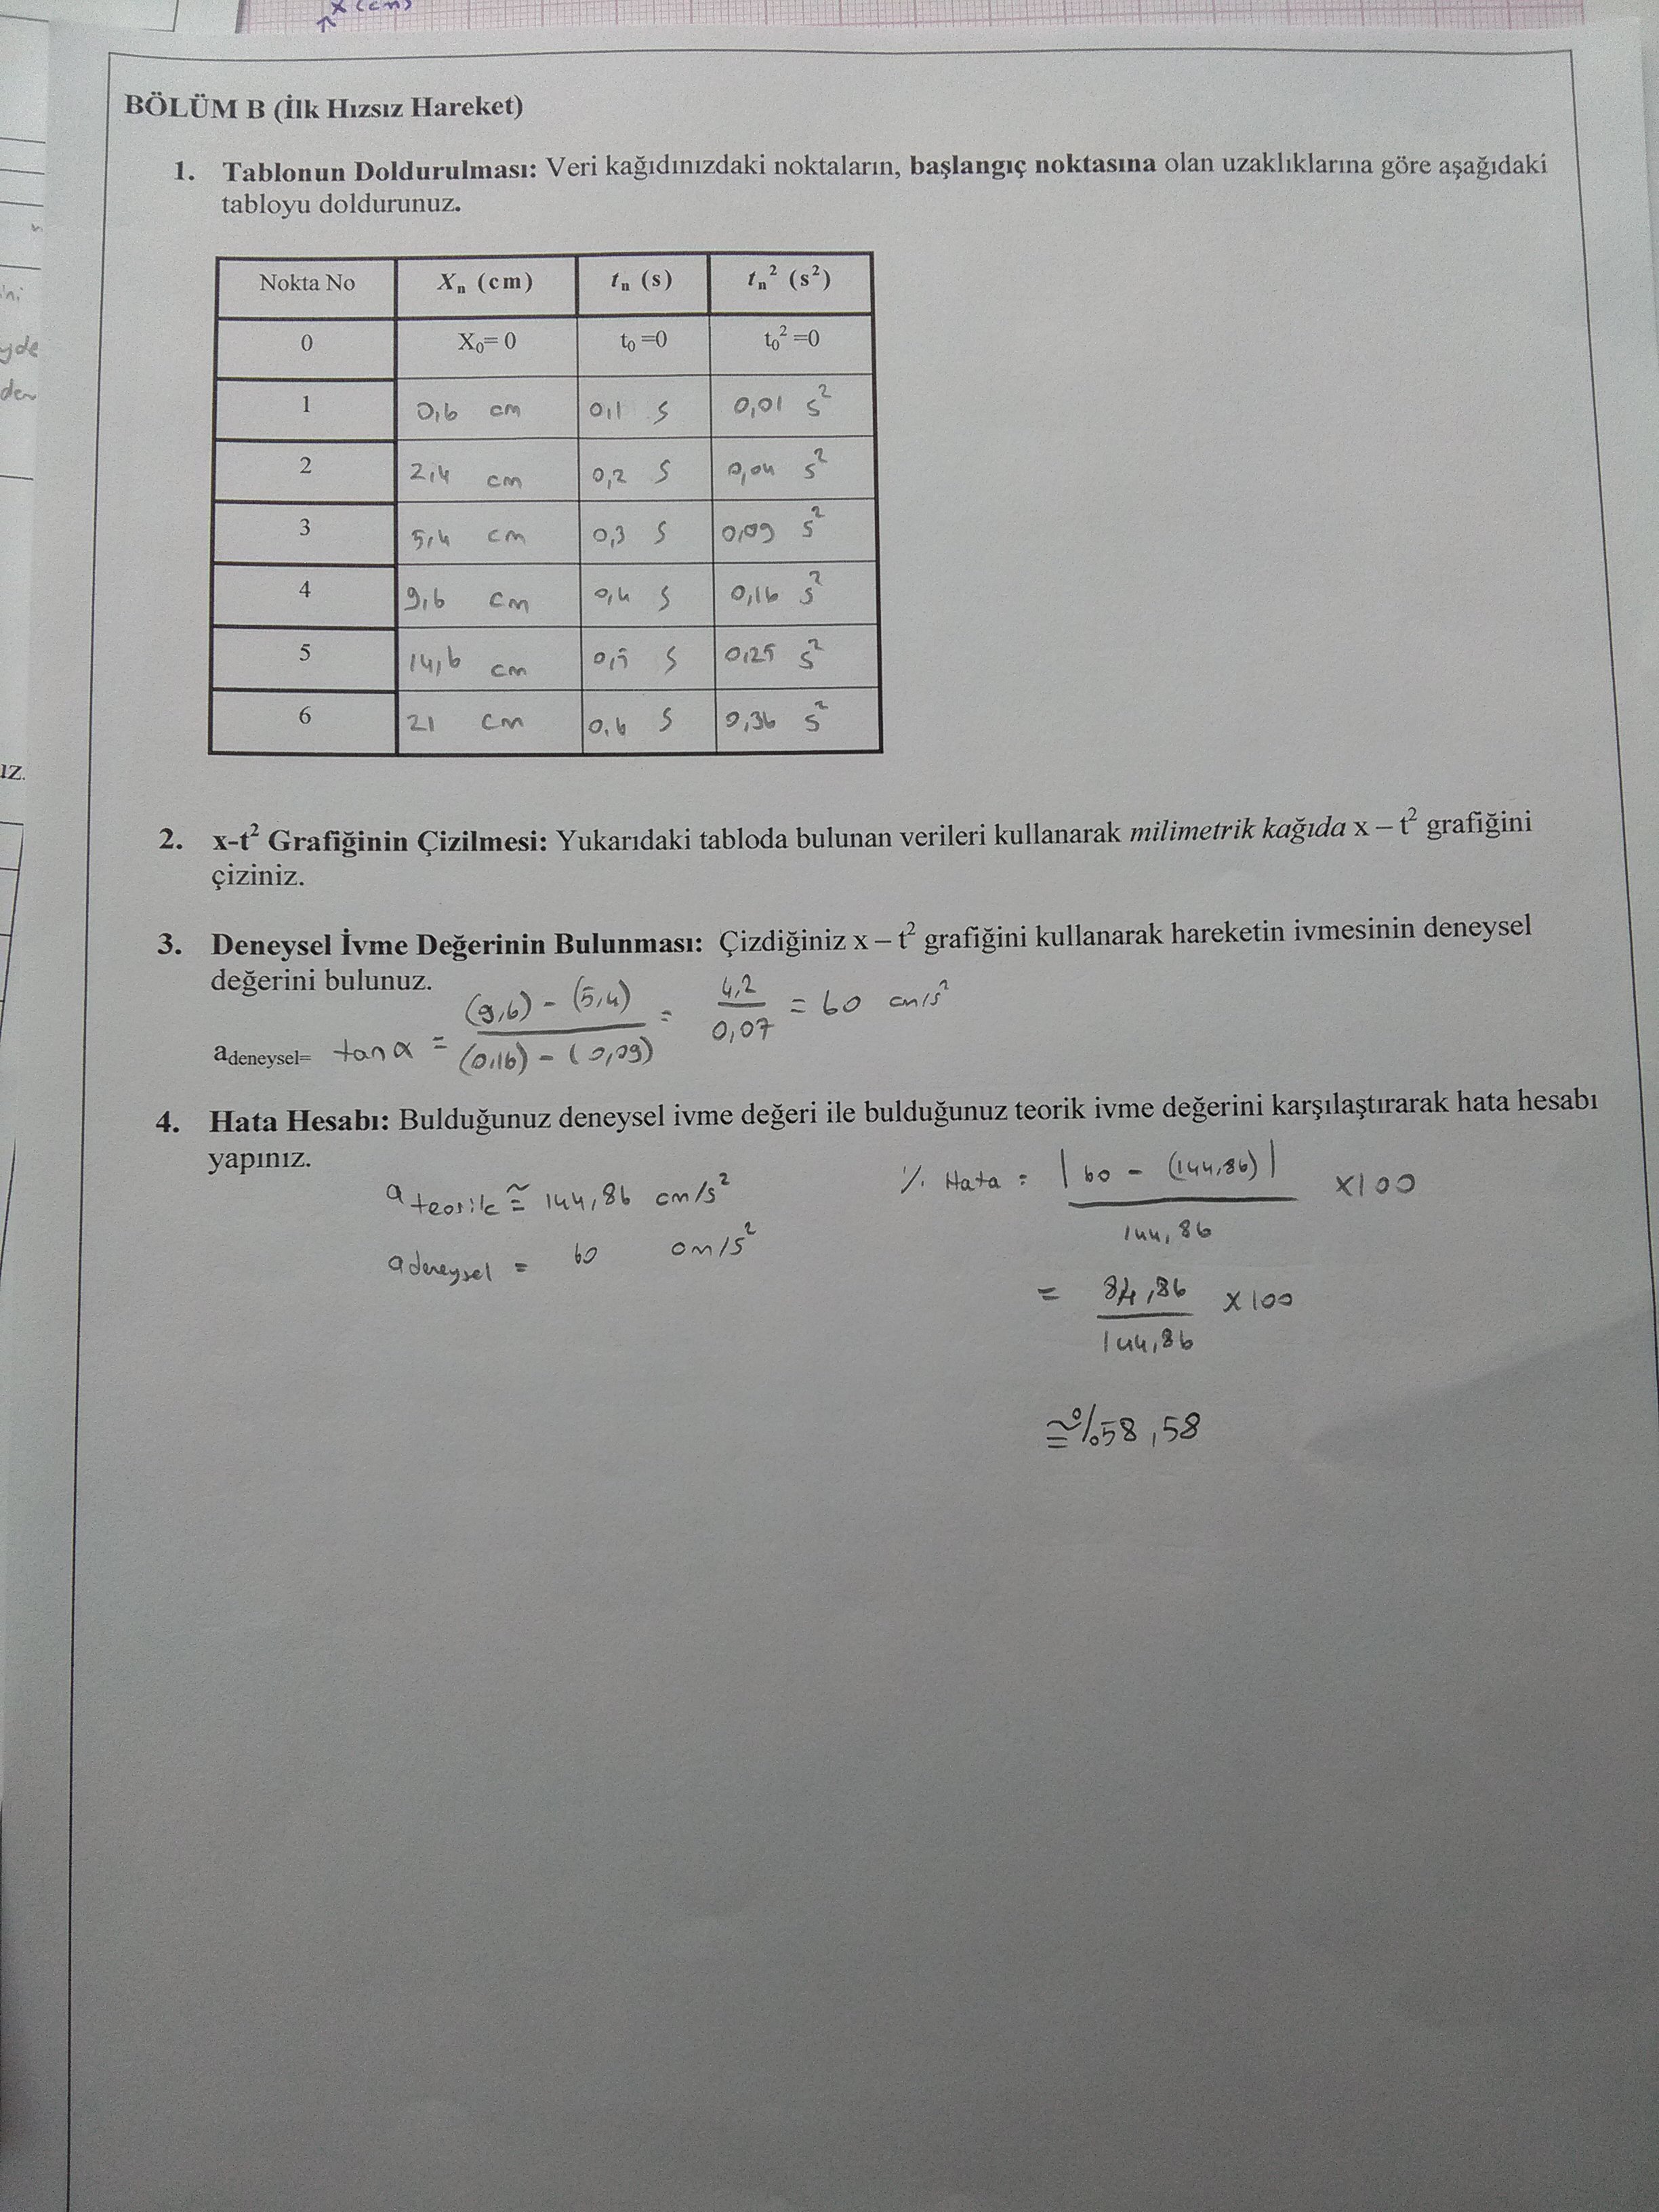 x (cm)
BÖLÜM B (İlk Hızsız Hareket)
1. Tablonun Doldurulması: Veri kağıdınızdaki noktaların, başlangıç noktasına olan uzaklıklarına göre aşağıdaki
tabloyu doldurunuz.
Nokta No Xn (cm) tn (s) tn² (s²)
0 X0= 0 t0 =0 t0² =0
1 0,6 cm 0,1 s 0,01 s²
2 2,4 cm 0,2 s 0,04 s²
3 5,4 cm 0,3 s 0,09 s²
4 9,6 cm 0,4 s 0,16 s²
5 14,6 cm 0,5 s 0,25 s²
6 21 cm 0,6 s 0,36 s²
2. x-t² Grafiğinin Çizilmesi: Yukarıdaki tabloda bulunan verileri kullanarak milimetrik kağıda x – t² grafiğini
çiziniz.
3. Deneysel İvme Değerinin Bulunması: Çizdiğiniz x – t² grafiğini kullanarak hareketin ivmesinin deneysel
değerini bulunuz.
adeneysel= tanα = (9,6) - (5,4) / (0,16) - (0,09) = 4,2 / 0,07 = 60 cm/s²
4. Hata Hesabı: Bulduğunuz deneysel ivme değeri ile bulduğunuz teorik ivme değerini karşılaştırarak hata hesabı
yapınız.
a teorik ≅ 144,86 cm/s²
a deneysel = 60 cm/s²
% Hata = |60 - (144,86)| / 144,86 x100
= 84,86 / 144,86 x100
≅ %58,58
ini
yde
den
ız.